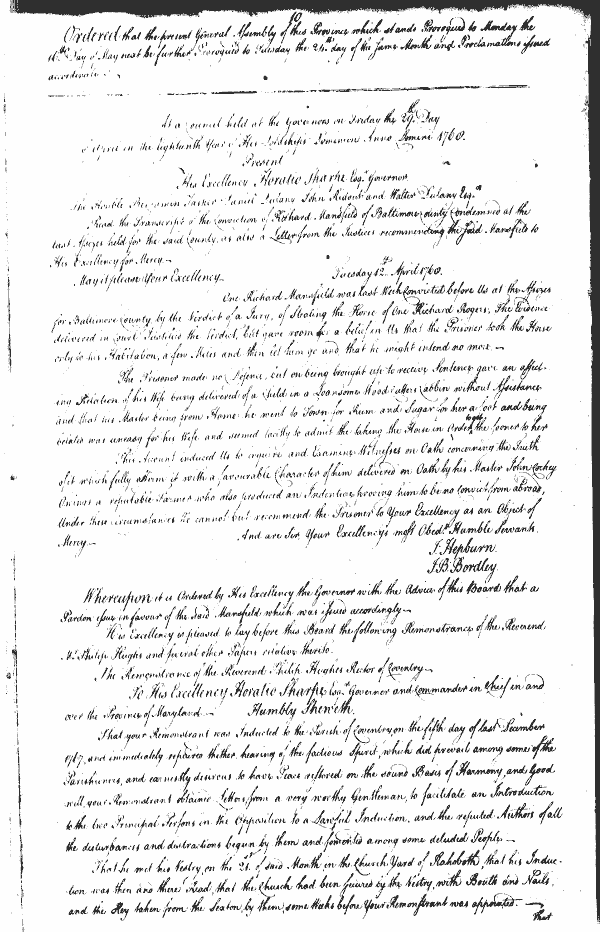 Ordered that the present General Assembly of this Province which stands Prorogued to Monday the
16th Day of May next be further Prorogued to Tuesday the 24th day of the same Month and Proclamations issued
accordingly
At a Council held at the Governors on Friday the 29th Day
of April in the Eighteenth Year of His Lordships Dominion Anno Domini 1768.
Present
His Excellency Horatio Sharpe Esqr. Governor
The Honble Benjamin Tasker Daniel Dulany John Ridout and Walter Dulany Esqrs.
Read the Transcript of the Conviction of Richard Mansfield of Baltimore County Condemned at the
last Assizes held for the said County, as also a Letter from the Justices recommending the said Mansfield to
His Excellency for Mercy.
May it please Your Excellency Tuesday 12th April 1768.
One Richard Mansfield was last Week Convicted before Us at the Assizes
for Baltimore County by the Verdict of a Jury, of Stealing the Horse of One Richard Rogers. The Evidence
delivered in Court Justified the Verdict, but gave room for a belief in Us that the Prisoner took the Horse
only to his Habitation, a few Miles and then let him go and that he might intend no more.
The Prisoner made no Defence, but on being brought up to receive Sentence gave an affect-
ing Relation of his Wife being delivered of a Child in a Loansome Wood Cutters Cabbin without Assistance
and that his Master being from Home he went to Town for Rum and Sugar for her a foot and being
belated was uneasy for his Wife and seemed tacitly to admit the taking the Horse in Order to get the sooner to her
This Account induced Us to enquire and Examine Witnesses on Oath concerning the Truth
of it which fully affirm it with a favourable Character of him delivered on Oath by his Master John Cockey
Owings a reputable Farmer who also produced an Indenture proving him to be no Convict from abroad,
Under these circumstances We cannot but recommend the Prisoner to Your Excellency as an Object of
Mercy And are Sir, Your Excellency's most Obedt. Humble Servants
J. Hepburn
J. B. Bordley
Whereupon it is Ordered by His Excellency the Governor with the Advice of this Board that a
Pardon issue in favour of the said Mansfield which was issued accordingly
His Excellency is pleased to lay before this Board the following Remonstrance of the Reverend
Mr. Philip Hughs and several other Papers relative thereto.
The Remonstrance of the Reverend Philip Hughes Rector of Coventry
To His Excellency Horatio Sharpe Esqr. Governor and Commander in Chief in and
over the Province of Maryland Humbly Sheweth
That your Remonstrant was Inducted to the Parish of Coventry on the fifth day of last December
1767, and immediately repaired thither, hearing of the factious Spirit, which did prevail among some of the
Parishioners, and earnestly desirous to have Peace restored on the sound Basis of Harmony, and Good
will, your Remonstrant obtained Letters from a very worthy Gentleman, to facilitate an Introduction
to the two Principal Persons in the Opposition to a Lawful Induction, and the reputed Authors of all
the disturbances and distractions begun by them and fomented among some deluded People.
That he met his Vestry, on the 21st of said Month in the Church Yard of Rahoboth, that his Induc-
tion was then and there Read, that the Church had been secured by the Vestry, with Boults and Nails,
and the Key taken from the Sexton by them, some Weeks before Your Remonstrant was appointed.
That